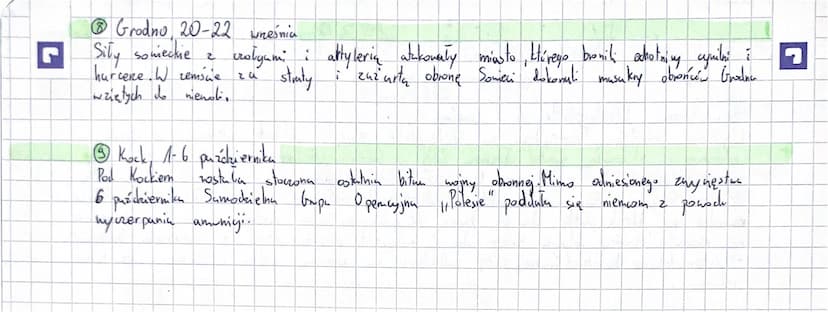 ⑧ Grodno, 20-22 września
Siły sowieckie z czołgami i artylerią atakowały miasto, którego bronili ochotnicy cywilni i
harcerze. W zemście za straty i zażartą obronę Sowieci dokonali masakry obrońców Grodna
wziętych do niewoli.
⑨ Kock, 1-6 października
Pod Kockiem została stoczona ostatnia bitwa wojny obronnej. Mimo odniesionego zwycięstwa
6 października Samodzielna Grupa Operacyjna „Polesie" poddała się niemcom z powodu
wyczerpania amunicji.